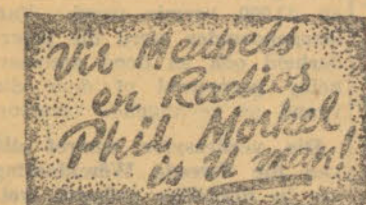 Vir Meubels
en Radios
Phil Morkel
is U man!